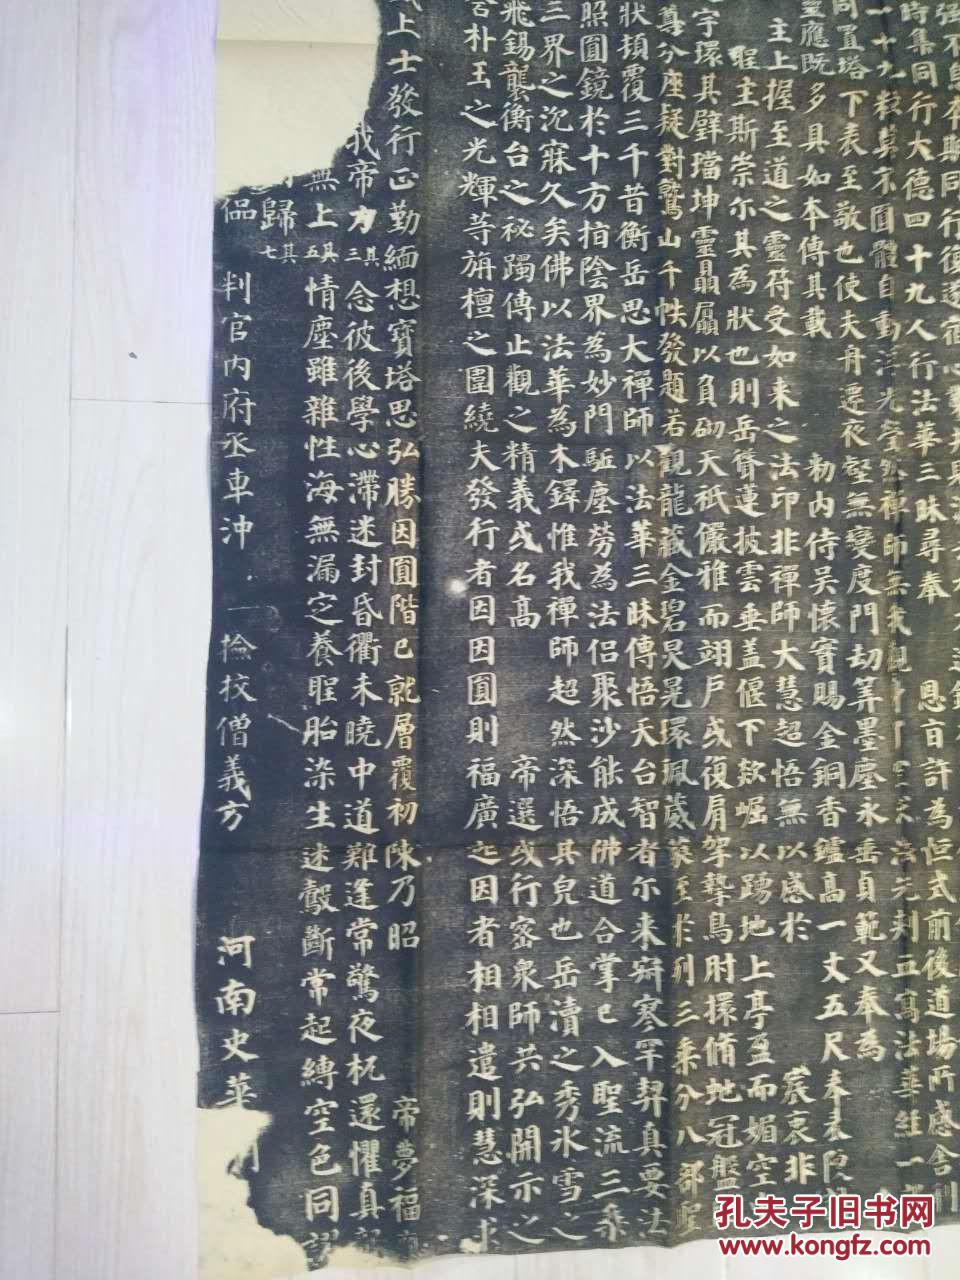 本期同行復遂宿心
時集同行大德四十九人行法華三昧尋奉 恩旨許為恒式前後道場所感舍利
一十九粒莫不圓體自動浮光瑩然禪師無我觀 法先刺血寫法華經一部
同置塔下表至敬也使夫舟遷夜壑無變度門劫筭墨塵永垂貞範又奉為
靈應既多具如本傳其載 勑內侍吳懷實賜金銅香鑪高一丈五尺奉表陳
主上握至道之靈符受如來之法印非禪師大慧超悟無以感於 宸衷非
聖主斯崇尔其為狀也則岳聳蓮披雲垂蓋偃下欻崛以踴地上亭盈而媚空
宇環其壁璫坤靈贔屭以負砌天祇儼雅而翊戶或復肩挐摯鳥肘擐脩虵冠盤
尊分座疑對鷲山千帙發題若觀龍藏金碧炅晃環珮葳蕤至於列三乘分八部聖
狀頍覆三千昔衡岳思大禪師以法華三昧傳悟天台智者尔來寂寥罕契真要法
照圓鏡於十方指陰界為妙門駈塵勞為法侶聚沙能成佛道合掌已入聖流三乘
三界之沉寐久矣佛以法華為木鐸惟我禪師超然深悟其皃也岳瀆之秀冰雪之
飛錫襲衡台之祕躅傳止觀之精義或名高 帝選或行密眾師共弘開示之
言朴玉之光輝等旃檀之圍繞夫發行者因因圓則福廣起因者相相遣則慧深求
上士發行正勤緬想寶塔思弘勝因圓階已就層覆初陳乃昭 帝夢福應
我帝力其三念彼後學心滯迷封昏衢未曉中道難逢常驚夜杌還懼真龍
無上其五情塵雖雜性海無漏定養聖胎染生迷鷇斷常起縛空色同謬
歸其七
判官內府丞車沖 檢校僧義方 河南史華
孔夫子旧书网
www.kongfz.com